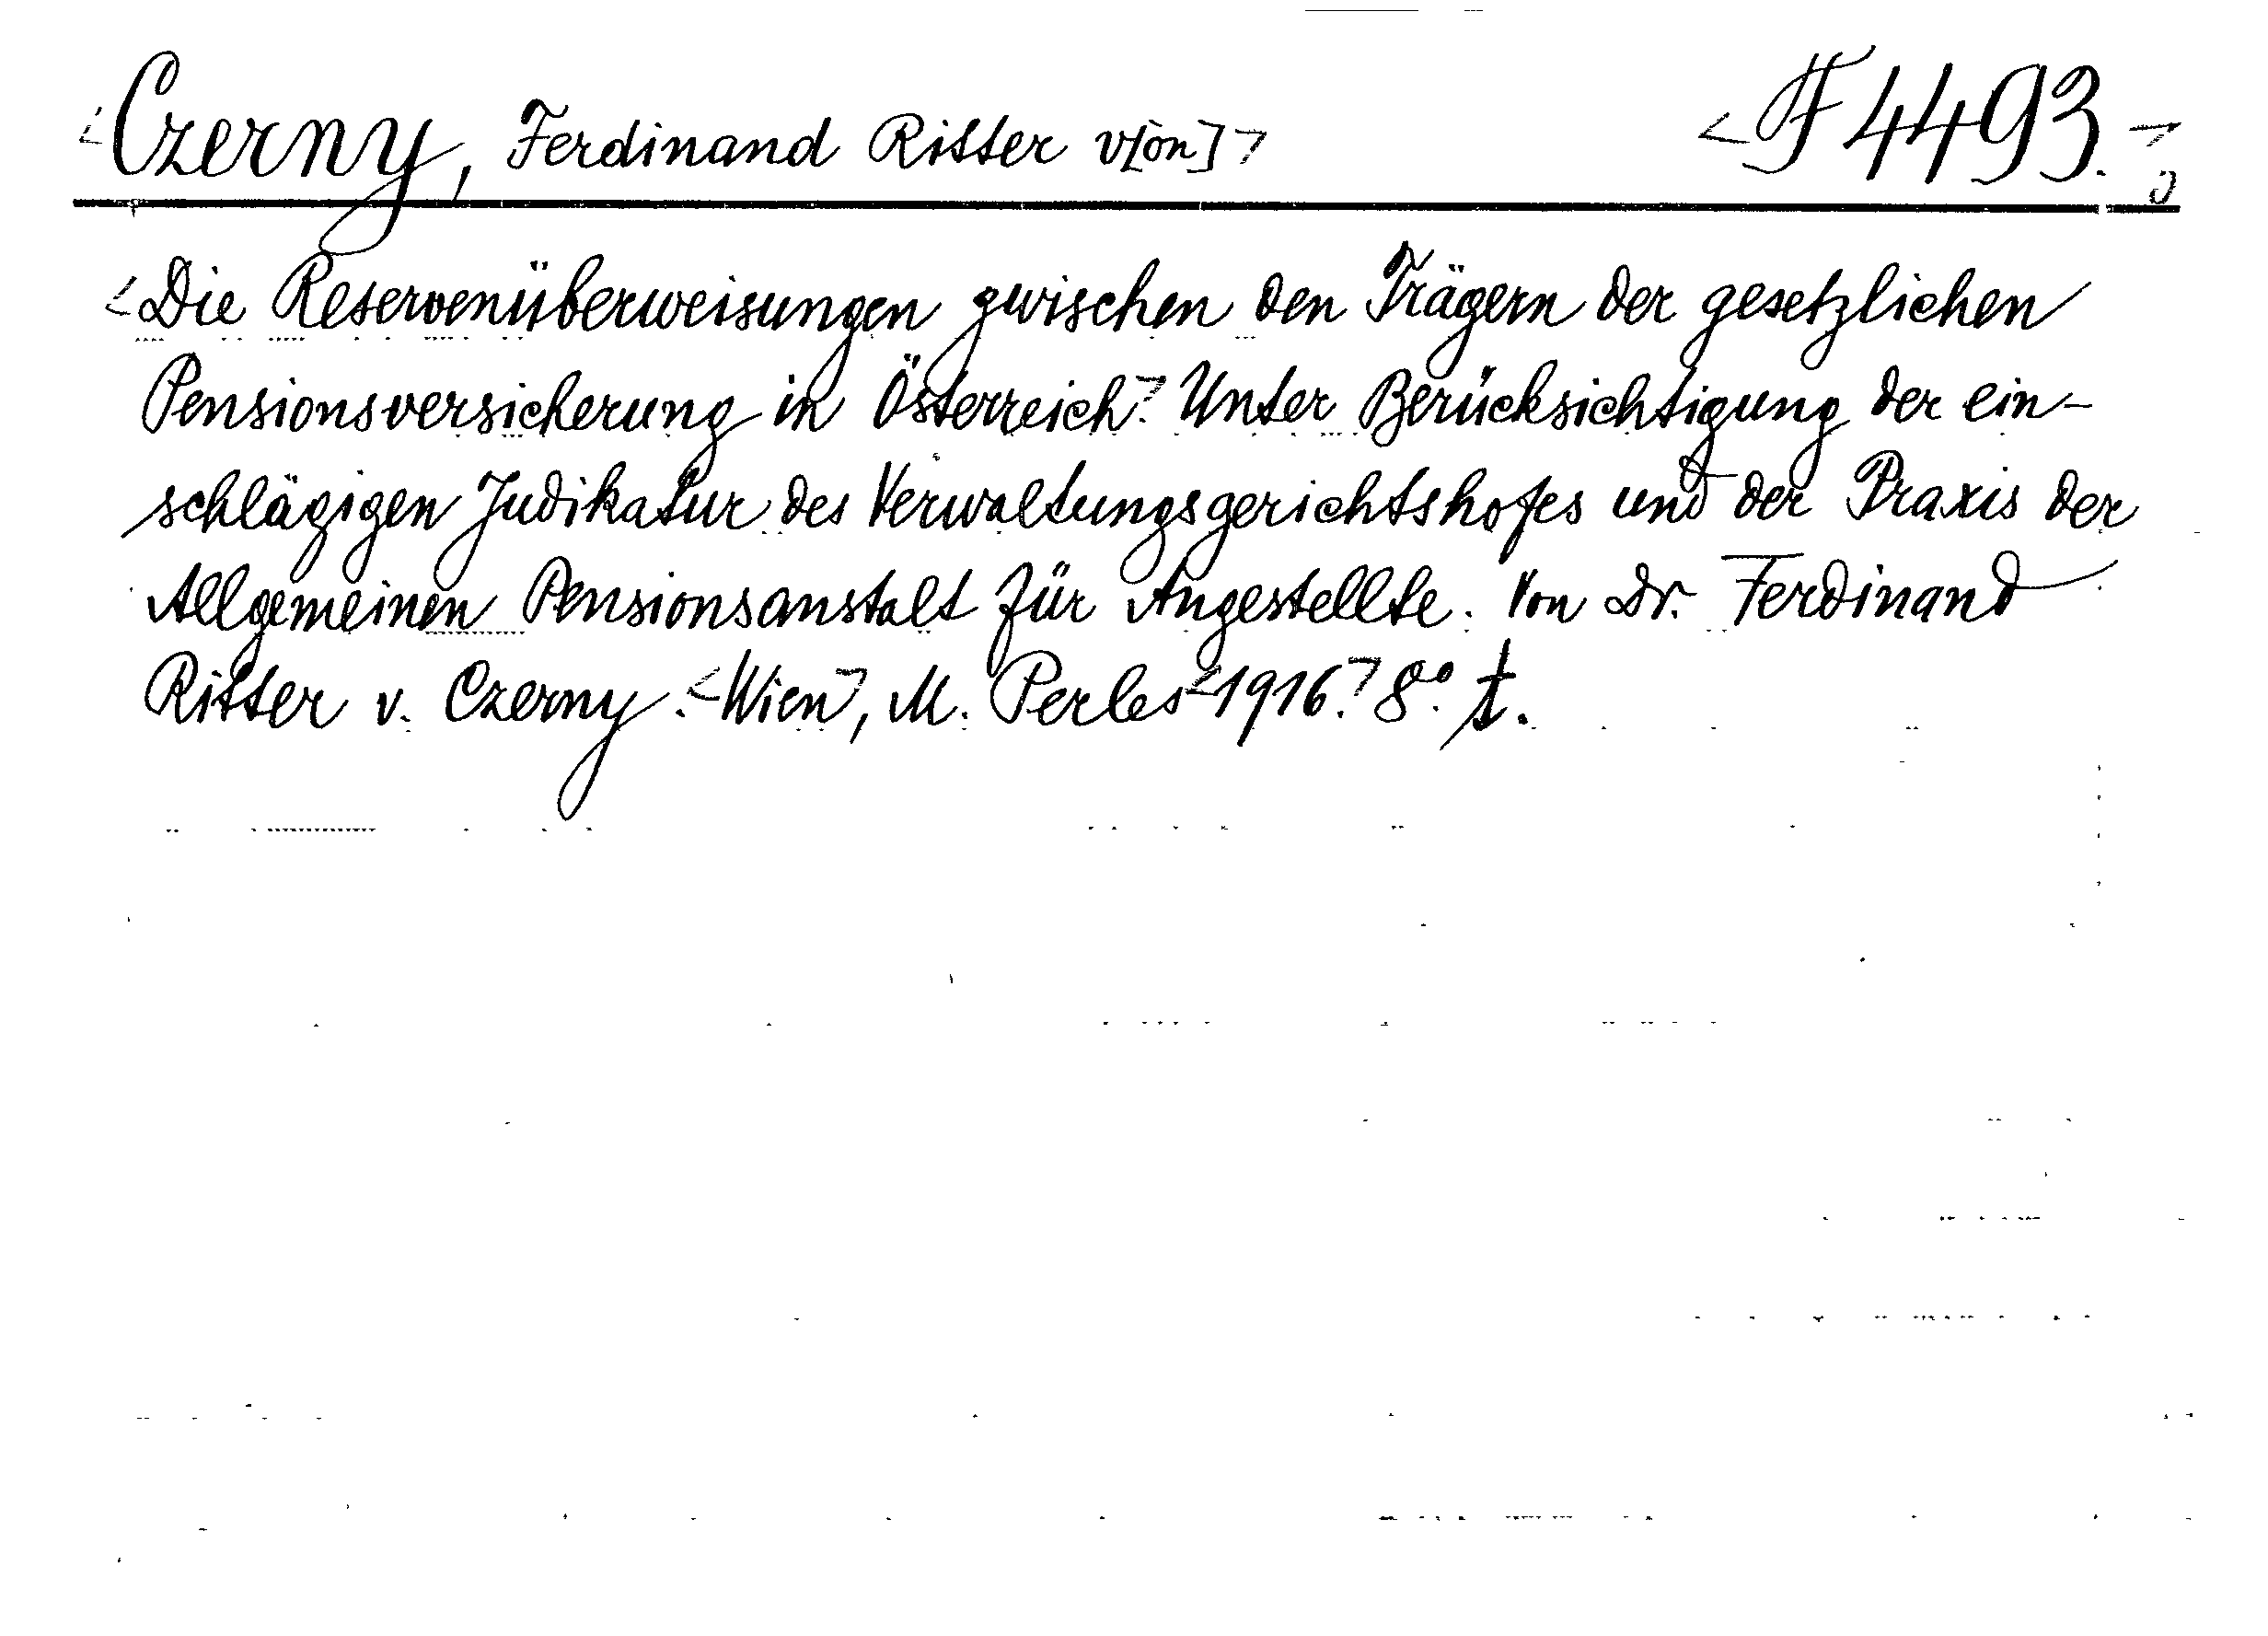 <Czerny, Ferdinand Ritter v[on]> <F 4493.>
<Die Reservenüberweisungen zwischen den Trägern der gesetzlichen
Pensionsversicherung in Österreich.> Unter Berücksichtigung der ein-
schlägigen Judikatur des Verwaltungsgerichtshofes und der Praxis der
Allgemeinen Pensionsanstalt für Angestellte. Von Dr. Ferdinand
Ritter v. Czerny. <Wien>, M. Perles <1916.> 8°.